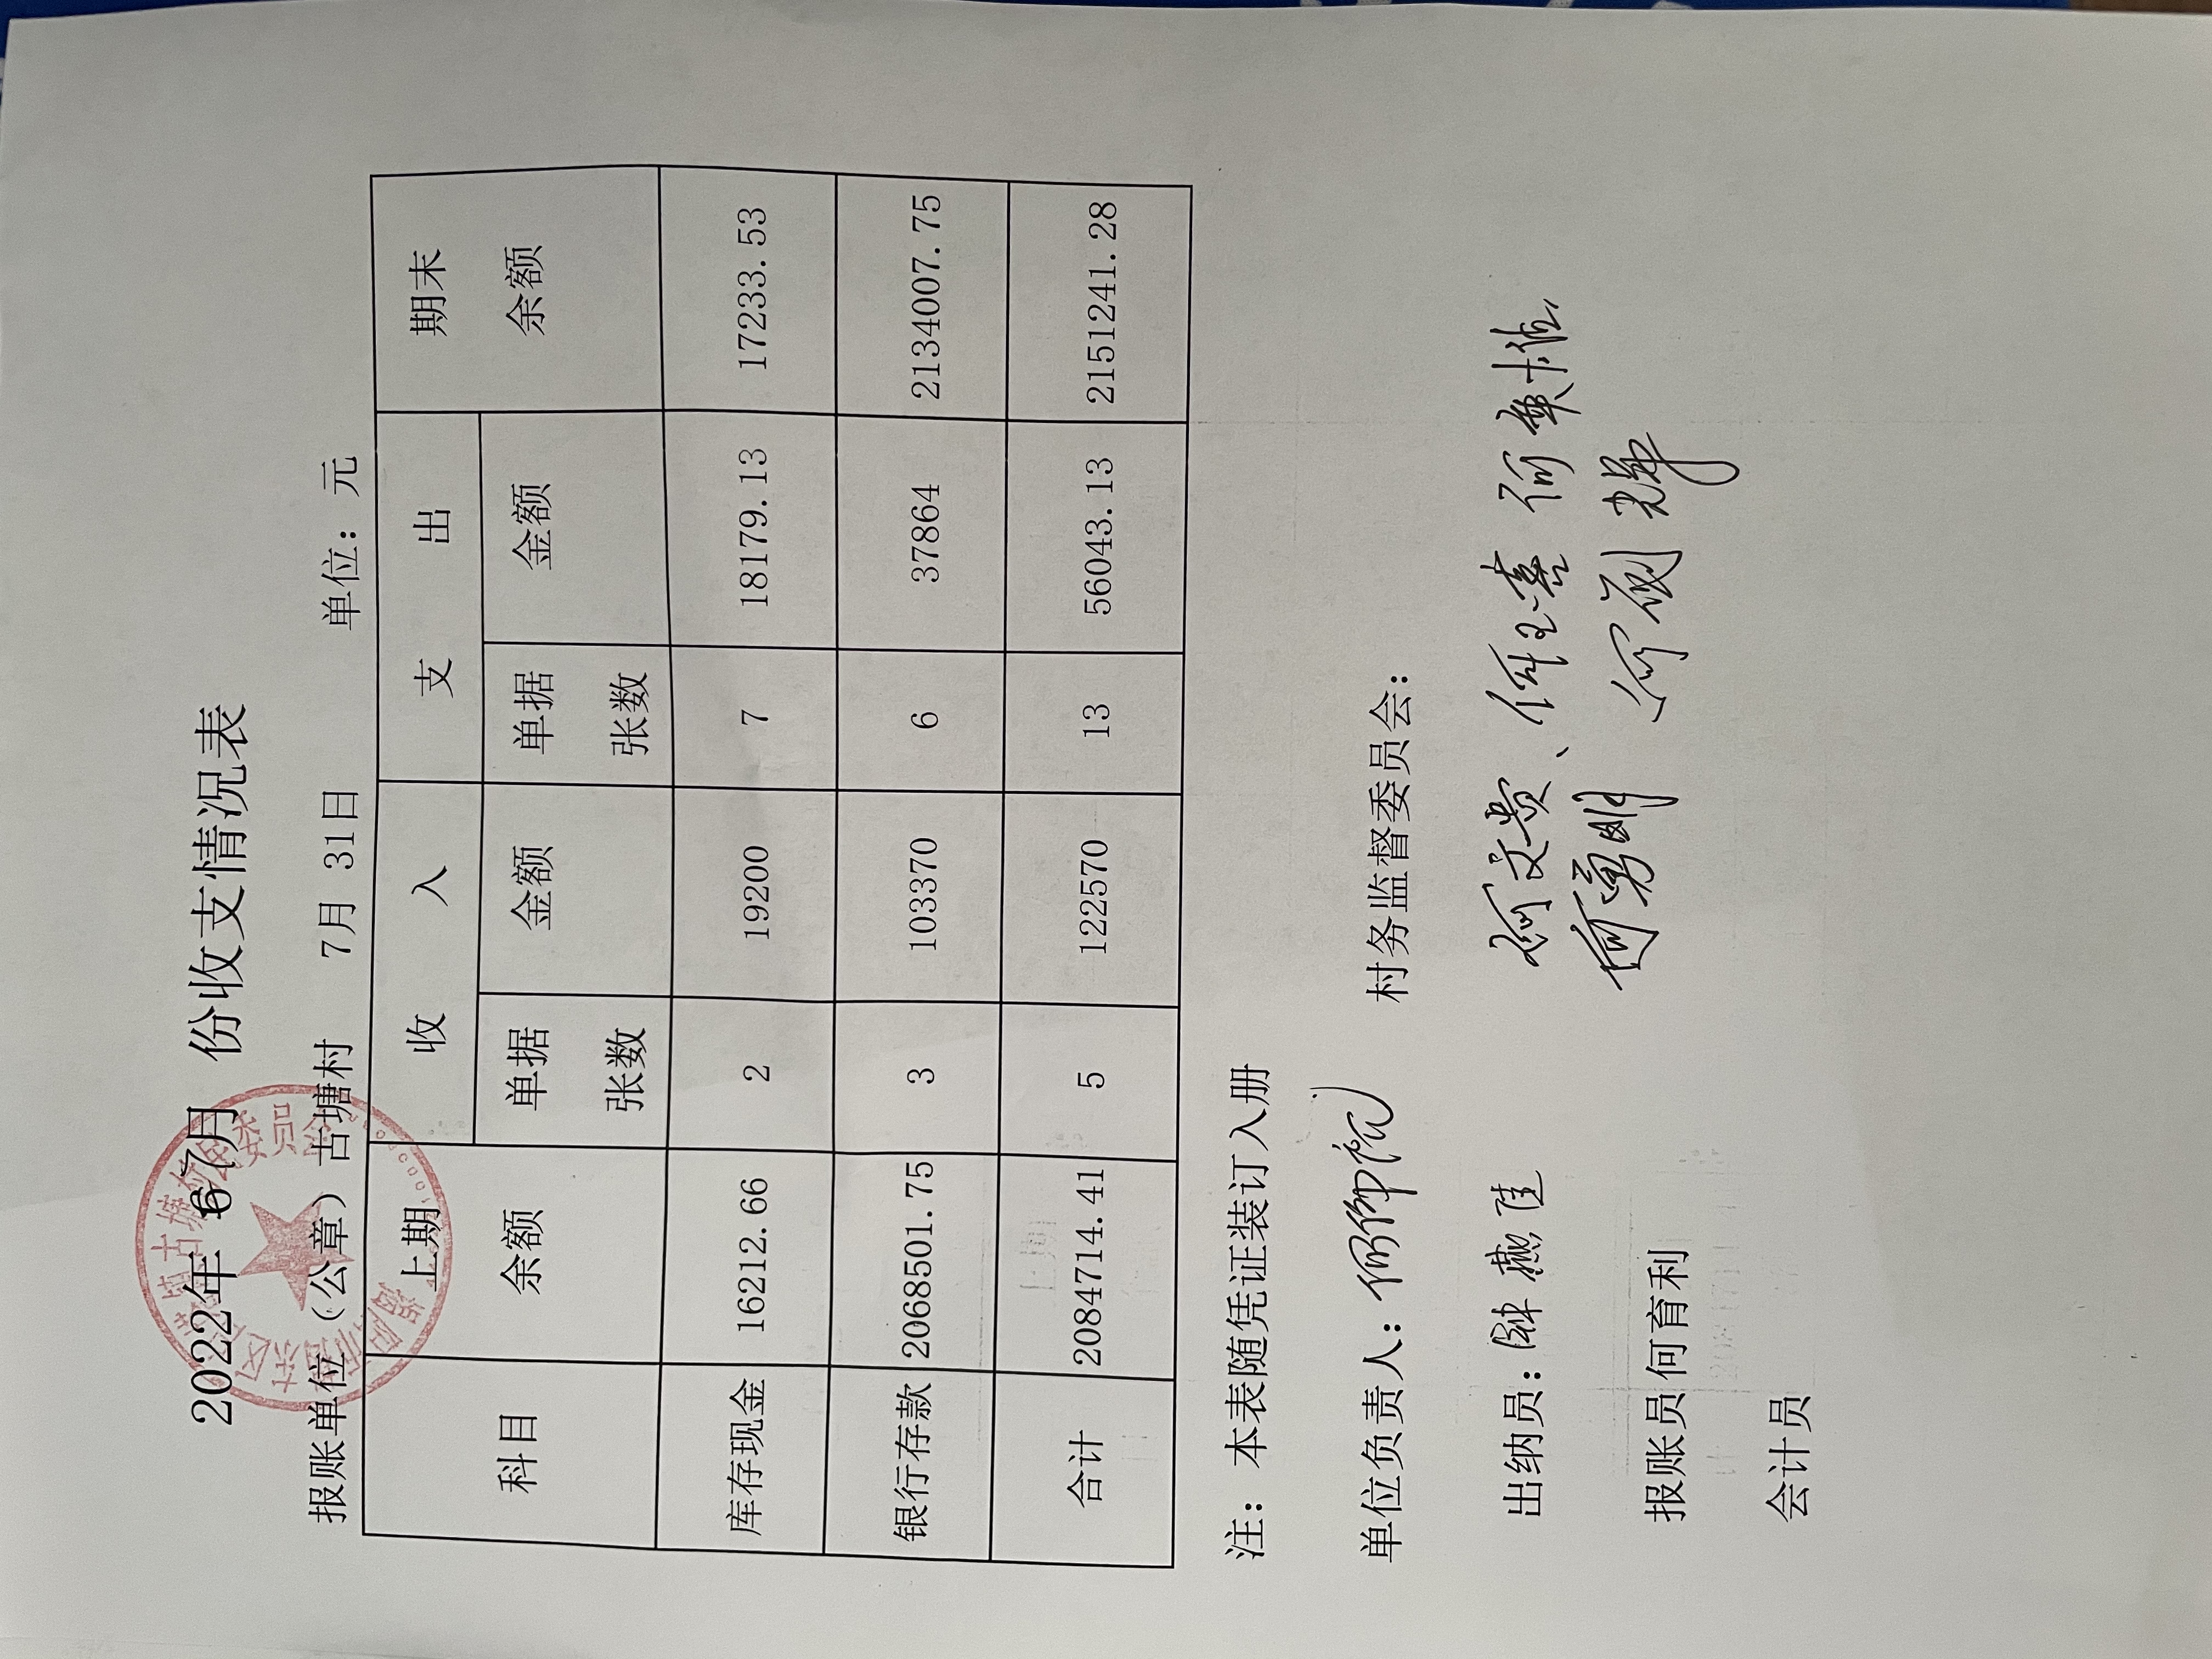 2022年 67月 份收支情况表
报账单位（公章）古塘村 7月 31日 单位：元
科目 上期余额 收入 支出 期末余额
单据张数 金额 单据张数 金额
库存现金 16212.66 2 19200 7 18179.13 17233.53
银行存款 2068501.75 3 103370 6 37864 2134007.75
合计 2084714.41 5 122570 13 56043.13 2151241.28
注：本表随凭证装订入册
单位负责人： 村务监督委员会：
何文贵、
何勇明
出纳员：
报账员何育利
会计员